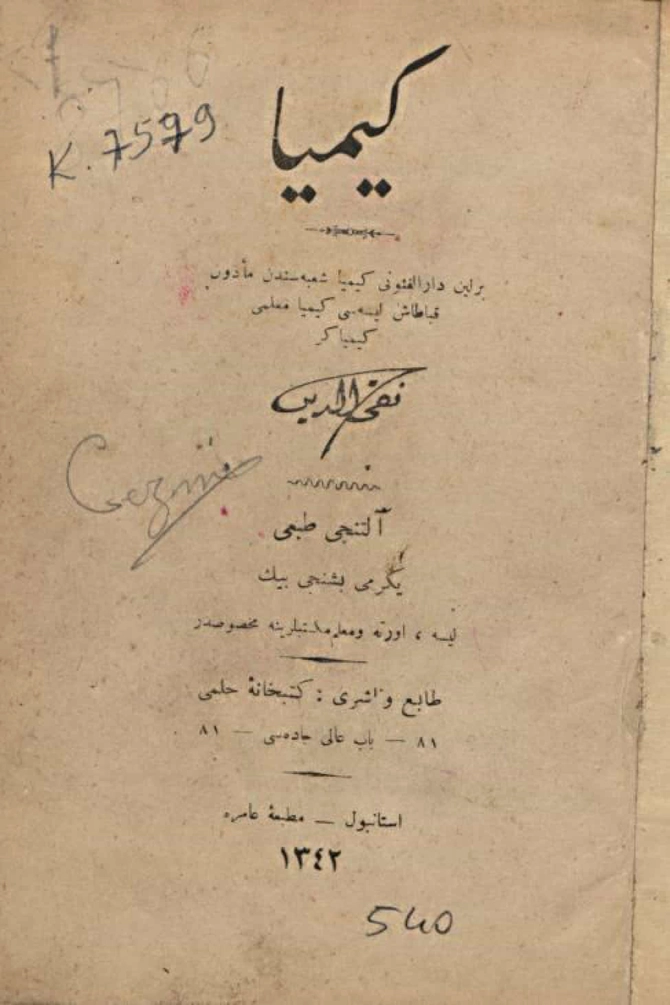 K. 7579
كيميا
برلين دارالفنونى كيميا شعبه‌سندن مأذون
قباطاش ليسه‌سى كيميا معلمى
كيمياكر
الدين
Cezmi
آلتنجى طبعى
يكرمى بشنجى بيك
ليسه ، اورته ومعلم مكتبلرينه مخصوصدر
طابع و ناشرى : كتبخانۀ حلمى
٨١ — باب عالى جاده‌سى — ٨١
استانبول — مطبعۀ عامره
١٣٤٢
540